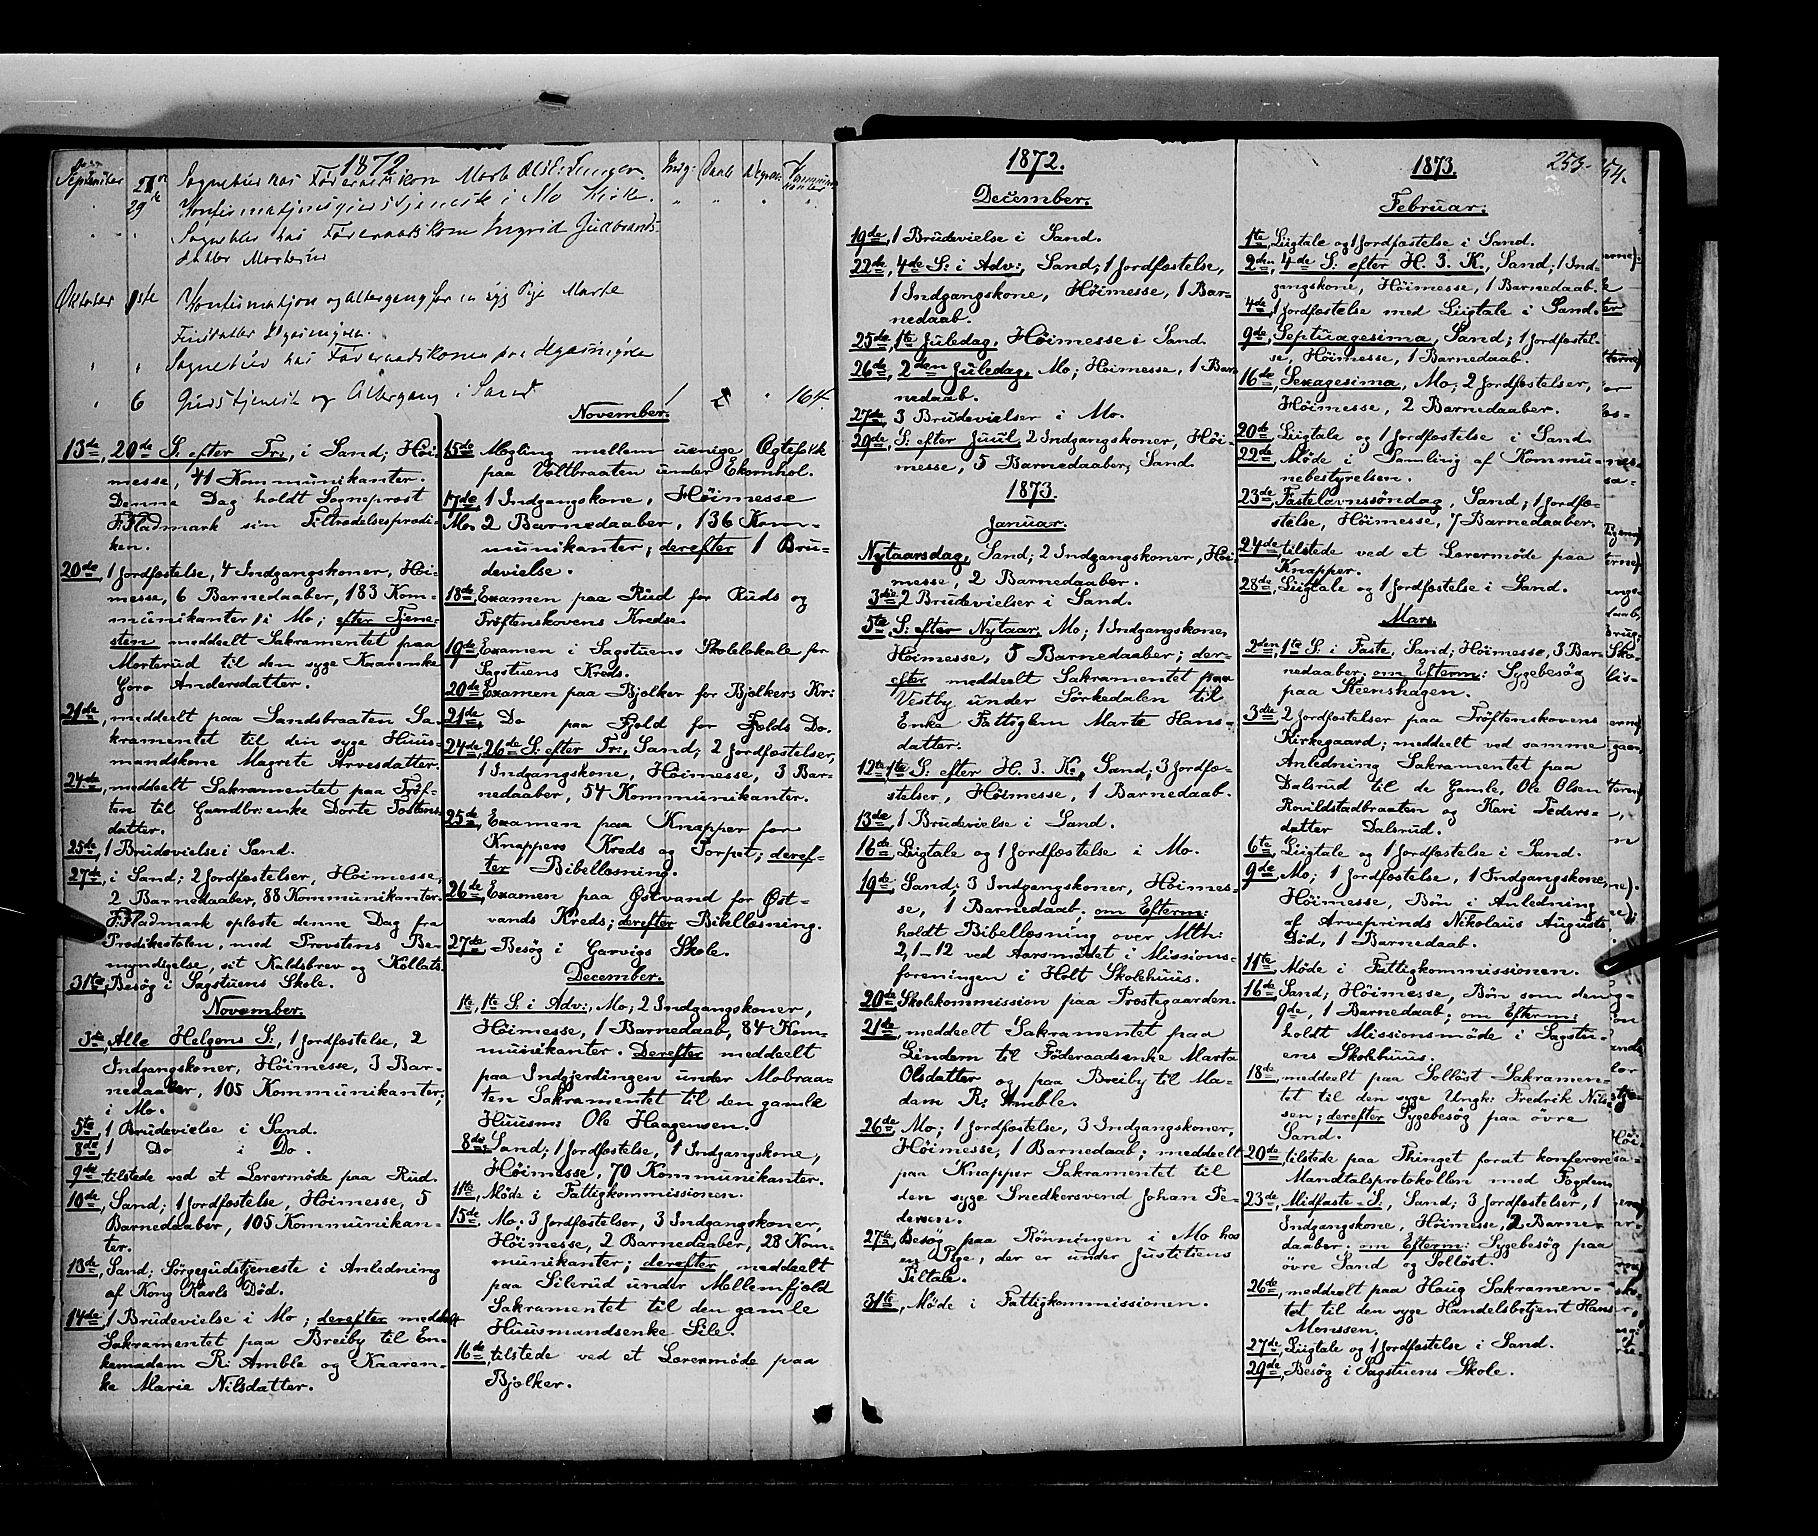 1872
September 27de Sognebud hos Føderaadskone Marte Indg: Daab Kommunikanter
" 29de Konfirmationsgudstjeneste i Mo Kirke. " " " "
" " Sognebud hos Føderaadskone Ingrid Gudbrands-
datter
Oktober 1ste Konfirmation og Altergang for en syg Pige Marte
" " Sognebud hos Føderaadskonen paa
" 6 Gudstjeneste og Altergang i Sand 1 " 164.
13de, 20de S. efter Tr:, i Sand; Høi-
messe, 41 Kommunikanter.
Denne Dag holdt Sogneprest
F. Fladmark sin Tiltrædelsesprædi-
ken.
20de, 1 Jordfæstelse, 4 Indgangskoner, Høi-
messe, 6 Barnedaaber, 183 Kom-
munikanter, i Mo; efter Tjene-
sten meddeelt Sakramentet paa
Morterud til den syge Kaarenke
Goro Andersdatter.
21de, meddeelt paa Sandsbraaten Sa-
kramentet til den syge Huus-
mandskone Magrete Arvesdatter.
24de, meddeelt Sakramentet paa Trøf-
ten til Gaardbr:enke Dorte Tostens-
datter.
25de, 1 Brudevielse i Sand.
27de, i Sand; 2 Jordfæstelser, Høimesse,
2 Barnedaaber, 88 Kommunikanter.
F. Fladmark oplæste denne Dag fra
Prædikestolen, med Provstens Be-
myndigelse, sit Kaldsbrev og Kollats.
31te, Besøg i Sagstuens Skole.
November.
3die, Alle Helgens S:, 1 Jordfæstelse, 2
Indgangskoner, Høimesse, 3 Bar-
nedaaber, 105 Kommunikanter;
i Mo.
5te, 1 Brudevielse i Sand.
8de, 1 Do i Do.
9de, tilstede ved et Lærermøde paa Rud.
10de, Sand; 1 Jordfæstelse, Høimesse, 5
Barnedaaber, 105 Kommunikan-
ter.
13de, Sand; Sørgegudstjeneste i Anledning
af Kong Karls Død.
14de, 1 Brudevielse i Mo; derefter meddeelt
Sakramentet paa Breiby til En-
kemadam R: Amble og Kaaren-
ke Marie Nilsdatter.
November.
15de, Mægling mellem uenige Ægtefolk
paa Voltbraaten under Ekornhol.
17de, 1 Indgangskone, Høimesse
Mo. 2 Barnedaaber, 136 Kom-
munikanter; derefter 1 Bru-
devielse.
18de, Examen paa Rud for Ruds og
Trøftenskovens Kredse.
19de, Examen i Sagstuens Skolelokale for
Sagstuens Kreds.
20de, Examen paa Bjølker for Bjølkers Kr:
21de, Do paa Fjeld for Fjelds Do.
24de, 26de S. efter Tr:, Sand; 2 Jordfæstelser,
1 Indgangskone, Høimesse, 3 Bar-
nedaaber, 54 Kommunikanter.
25de, Examen paa Knapper for
Knappers Kreds og Torpet; deref-
ter Bibellæsning.
26de, Examen paa Østvand for Øst-
vands Kreds; derefter Bibellæsning.
27de, Besøg i Garvigs Skole.
December.
1te, 1te S. i Adv:, Mo; 2 Indgangskoner,
Høimesse, 1 Barnedaab, 84 Kom-
munikanter. Derefter meddeelt
paa Indgjerdingen under Mobraa-
ten Sakramentet til den gamle
Huusm: Ole Haagensen.
8de, Sand; 1 Jordfæstelse, 1 Indgangskone,
Høimesse, 70 Kommunikanter.
11te, Møde i Fattigkommissionen.
15de, Mo; 3 Jordfæstelser, 3 Indgangskoner,
Høimesse, 2 Barnedaaber, 28 Kom-
munikanter; derefter meddeelt
paa Silerud under Mellemfjeld
Sakramentet til den gamle
Huusmandsenke Sile.
16de, tilstede ved et Lærermøde paa
Bjølker.
1872.
December.
19de, 1 Brudevielse i Sand.
22de, 4de S: i Adv:, Sand; 1 Jordfæstelse,
1 Indgangskone, Høimesse, 1 Bar-
nedaab.
25de, 1te Juledag, Høimesse i Sand.
26de, 2den Juledag, Mo; Høimesse, 1 Bar-
nedaab.
27de, 3 Brudevielser i Mo.
29de, S: efter Juul, 2 Indgangskoner, Høi-
messe, 5 Barnedaaber, Sand.
1873.
Januar.
Nytaarsdag, Sand; 2 Indgangskoner, Høi-
messe, 2 Barnedaaber.
3die, 2 Brudevielser i Sand.
5te, S: efter Nytaar, Mo; 1 Indgangskone,
Høimesse, 5 Barnedaaber; der-
efter meddeelt Sakramentet paa
Vestby under Sørkedalen til
Enke Fattiglem Marte Hans-
datter.
12te, 1te S. efter H. 3. K., Sand; 3 Jordfæ-
stelser, Høimesse, 1 Barnedaab.
13de, 1 Brudevielse i Sand.
16de, Liigtale og 1 Jordfæstelse i Mo.
19de, Sand; 3 Indgangskoner, Høimes-
se, 1 Barnedaab; om Efterm:
holdt Bibellæsning over Mth:
2,1-12 ved Aarsmødet i Missions-
foreningen i Holt Skolehuus.
20de, Skolekommission paa Præstegaarden.
21de, meddeelt Sakramentet paa
Lindern til Føderaadsenke Marta
Olsdatter og paa Breiby til Ma-
dam R: Amble.
26de, Mo; 1 Jordfæstelse, 3 Indgangskoner,
Høimesse, 1 Barnedaab; meddeelt
paa Knapper Sakramentet til
den syge Snedkersvend Johan Pe-
dersen.
27de, Besøg paa Rønningen i Mo hos
en Pige, der er under Justitiens
Tiltale.
31te, Møde i Fattigkommissionen.
1873.
253.
Februar.
1te, Liigtale og 1 Jordfæstelse i Sand.
2den, 4de S: efter H. 3. K., Sand; 1 Ind-
gangskone, Høimesse, 1 Barnedaab.
4de, 1 Jordfæstelse med Liigtale i Sand.
9de, Septuagesima, Sand; 1 Jordfæstel-
se, Høimesse, 1 Barnedaab.
16de, Sexagesima, Mo; 2 Jordfæstelser,
Høimesse, 2 Barnedaaber.
20de, Liigtale og 1 Jordfæstelse i Sand.
22de, Møde i Samling af Kommu-
nebestyrelsen.
23de, Fastelavnssøndag, Sand; 1 Jordfæ-
stelse, Høimesse, 7 Barnedaaber.
24de, tilstede ved et Lærermøde paa
Knapper.
28de, Liigtale og 1 Jordfæstelse i Sand.
Mars.
2den, 1te S: i Faste, Sand; Høimesse, 3 Bar-
nedaaber; om Efterm: Sygebesøg
paa Steenshagen.
3die, 2 Jordfæstelser paa Trøftenskovens
Kirkegaard; meddeelt ved samme
Anledning Sakramentet paa
Dalsrud til de Gamle, Ole Olsen
Rovildstadbraaten og Kari Peders-
datter Dalsrud.
6te, Liigtale og 1 Jordfæstelse i Sand.
9de, Mo; 1 Jordfæstelse, 1 Indgangskone,
Høimesse, Bøn i Anledning
af Arveprinds Nikolaus Augusts
Død, 1 Barnedaab.
11te, Møde i Fattigkommissionen.
16de, Sand; Høimesse, Bøn som den
9de, 1 Barnedaab; om Efterm:
holdt Missionsmøde i Sagstu-
ens Skolehuus.
18de, meddeelt paa Solløst Sakramen-
tet til den syge Ungk: Fredrik Nils-
sen; derefter Sygebesøg paa øvre
Sand.
20de, tilstede paa Thinget forat konferere
Mandtalsprotokollen med Fogden
23de, Midfaste-S., Sand; 3 Jordfæstelser, 1
Indgangskone, Høimesse, 2 Barne-
daaber; om Efterm: Sygebesøg paa
øvre Sand og Solløst.
26de, meddeelt paa Haug Sakramen-
tet til den syge Handelsbetjent Hans
Monssen.
27de, Liigtale og 1 Jordfæstelse i Sand.
29de, Besøg i Sagstuens Skole.